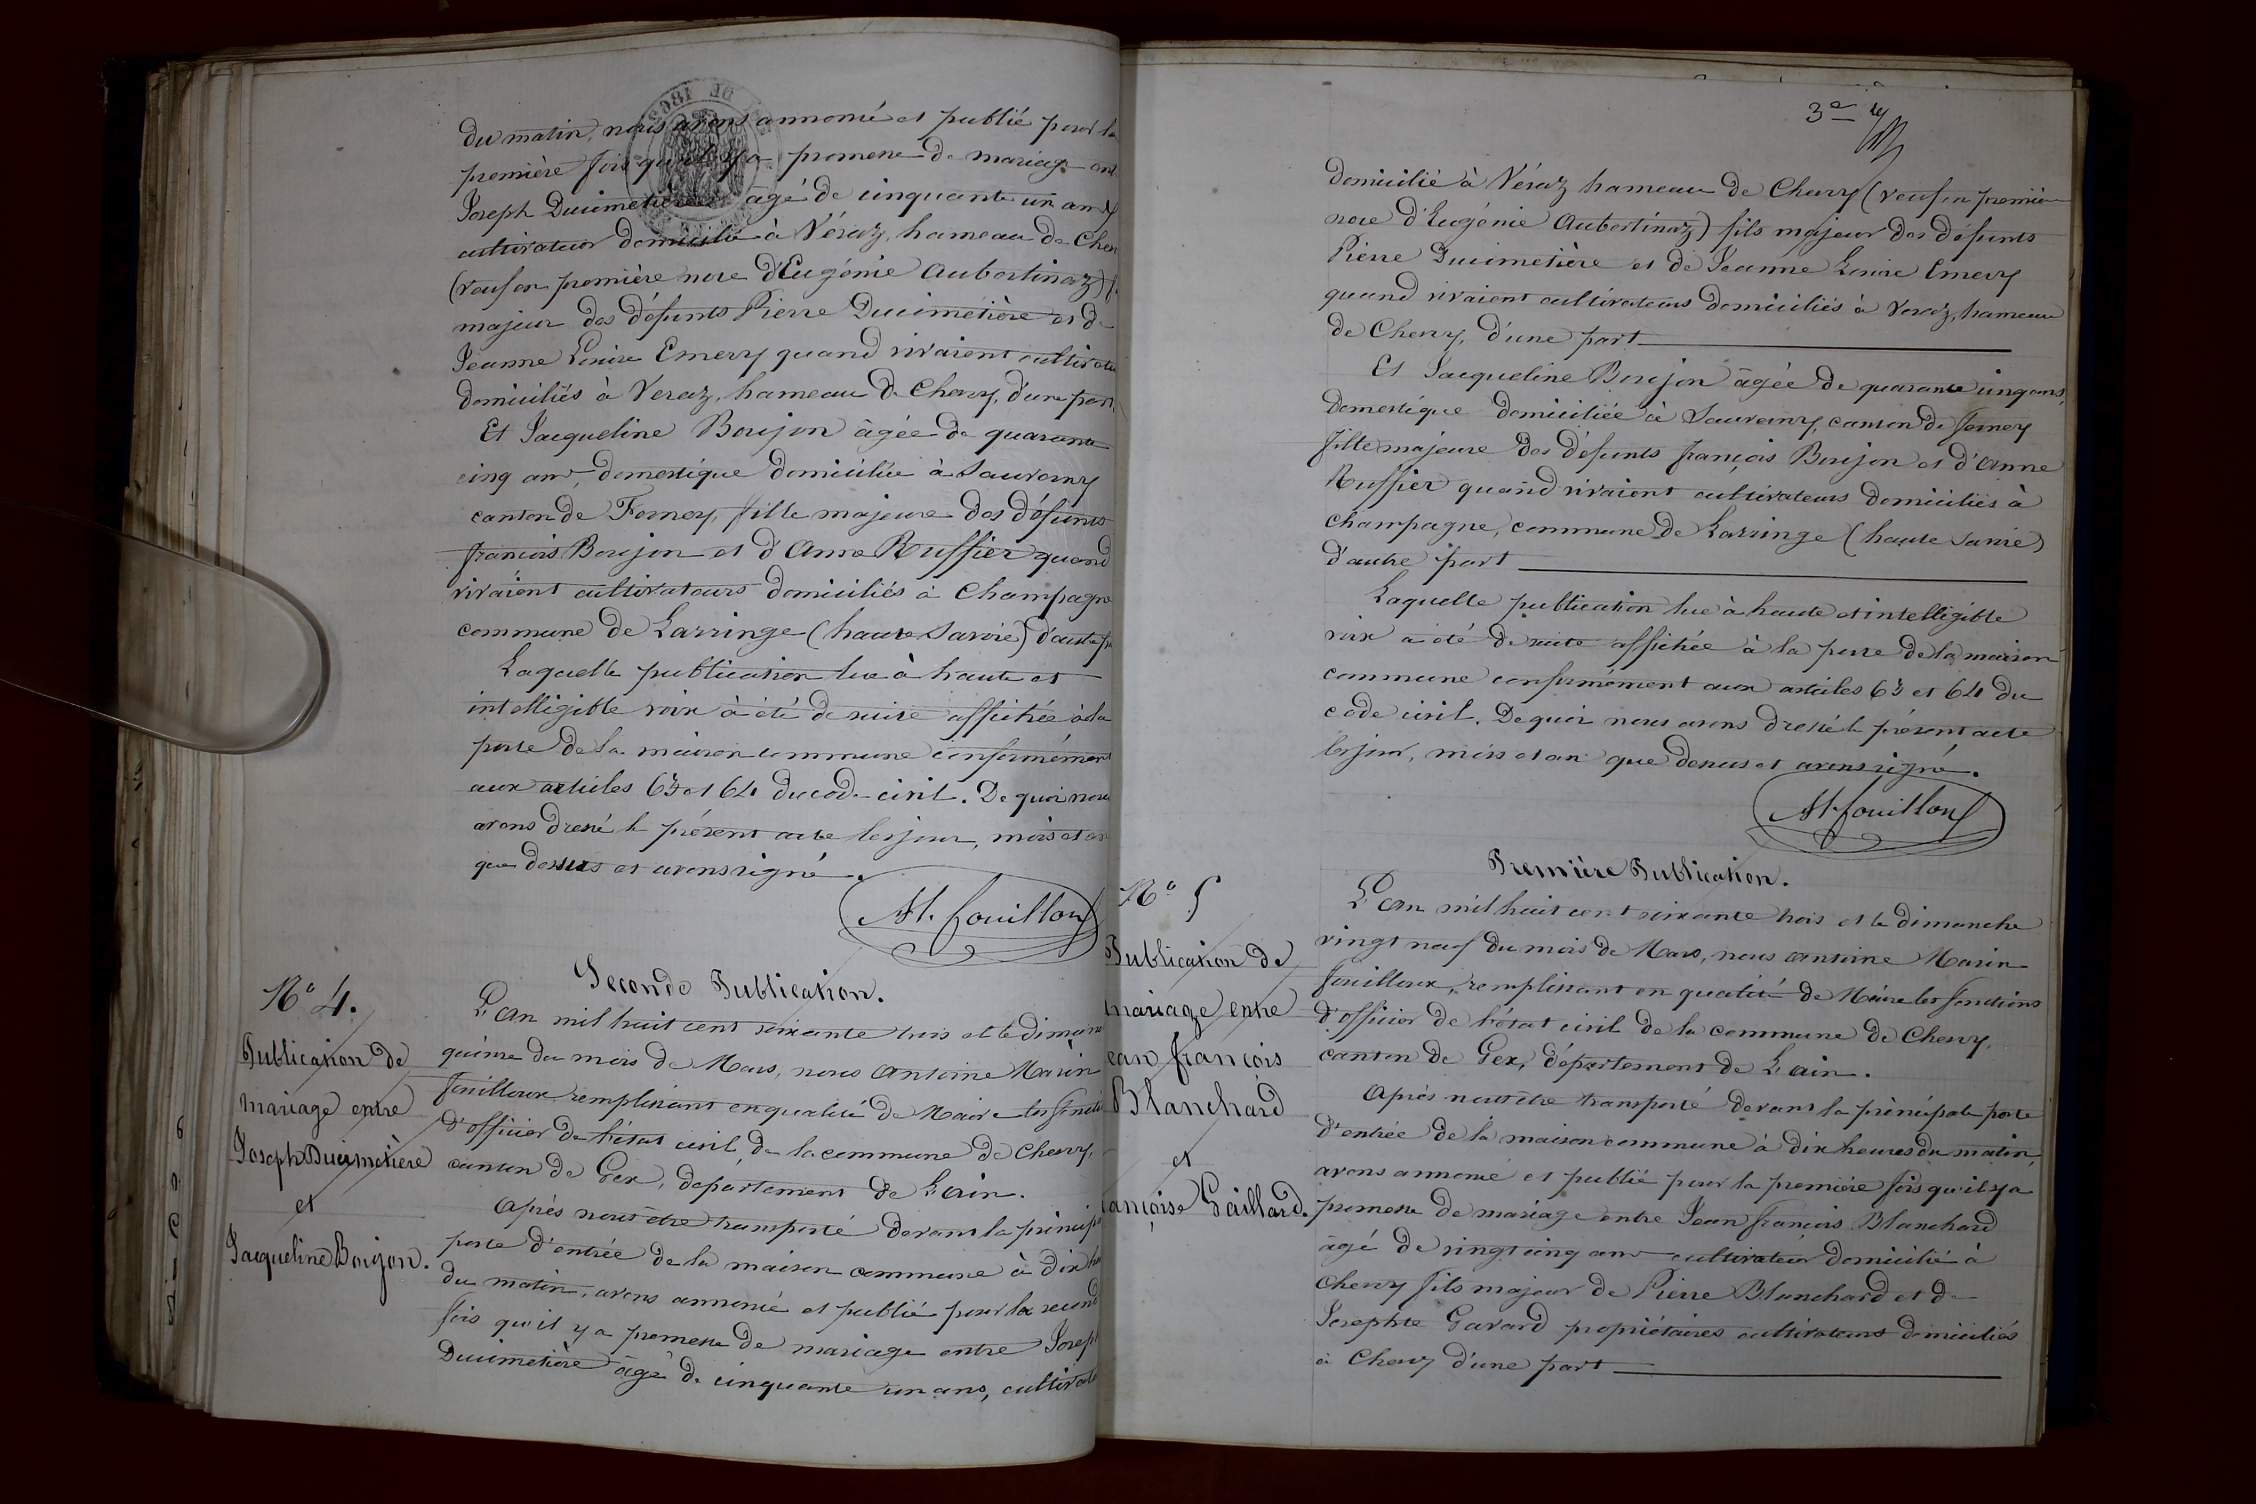 du matin, nous avons annoncé et publié pour la
première fois qu'il y a promesse de mariage ent
Joseph Ducimetière âgé de cinquante un ans
cultivateur domicilié à Véraz, hameau de Chev
(veuf en première noce d'Eugénie Aubertinaz) f
majeur des défunts Pierre Ducimetière et de
Jeanne Louise Emery quand vivaient cultivate
domiciliés à Veraz, hameau de Chevry, d'une part.
Et Jacqueline Boujon âgée de quarante
cinq ans, domestique domiciliée à Sauverny
canton de Ferney, fille majeure des défunts
françois Boujon et d'Anne Ruffier quand
vivaient cultivateurs domiciliés à Champagne
commune de Larringe (haute Savoie) d'autre p
Laquelle publication lue à haute et
intelligible voix à été de suite affichée à la
porte de la maison commune conformément
aux articles 63 et 64 du code civil. De quoi nous
avons dressé le présent acte les jour, mois et an
que dessus et avons signé.
At. fouilloux
Seconde Publication.
N° 4.
Publication de
mariage entre
Joseph Ducimetière
et
Jacqueline Boujon.
L'An mil huit cent soixante trois et le diman
quinze du mois de Mars, nous Antoine Marin
fouilloux remplissant en qualité de Maire les foncti
d'officier de l'état civil de la commune de Chevry,
canton de Gex, département de L'ain.
Après nous être transporté devant la princip
porte d'entrée de la maison commune à dix h
du matin, avons annoncé et publié pour la second
fois qu'il y a promesse de mariage entre Josep
Ducimetière âgé de cinquante un ans, cultivat
3e
domicilié à Véraz hameau de Chevry (veuf en première
noce d'Eugénie Aubertinaz) fils majeur des défunts
Pierre Ducimetière et de Jeanne Louise Emery
quand vivaient cultivateurs domiciliés à Veraz, hameau
de Chevry, d'une part
Et Jacqueline Boujon âgée de quarante cinq ans,
domestique domiciliée à Sauverny, canton de ferney
fille majeure des défunts françois Boujon et d'Anne
Ruffier quand vivaient cultivateurs domiciliés à
Champagne, commune de Larringe (haute Savoie)
d'autre part
Laquelle publication lue à haute et intelligible
voix a été de suite affichée à la porte de la maison
commune conformément aux articles 63 et 64 du
code civil. De quoi nous avons dressé le présent acte
les jour, mois et an que dessus et avons signé.
At. fouilloux
Première Publication.
N° 5
Publication de
mariage entre
ean françois
Blanchard
et
ançoise Gaillard.
L'An mil huit cent soixante trois et le dimanche
vingt neuf du mois de Mars, nous Antoine Marin
fouilloux, remplissant en qualité de Maire les fonctions
d'officier de l'état civil de la commune de Chevry,
canton de Gex, département de L'ain.
Après nous être transporté devant la principale porte
d'entrée de la maison commune à dix heures du matin,
avons annoncé et publié pour la première fois qu'il y a
promesse de mariage entre Jean françois Blanchard
âgé de vingt cinq ans cultivateur domicilié à
Chevry fils majeur de Pierre Blanchard et de
Josephte Gavard propriétaires cultivateurs domiciliés
à Chevry d'une part